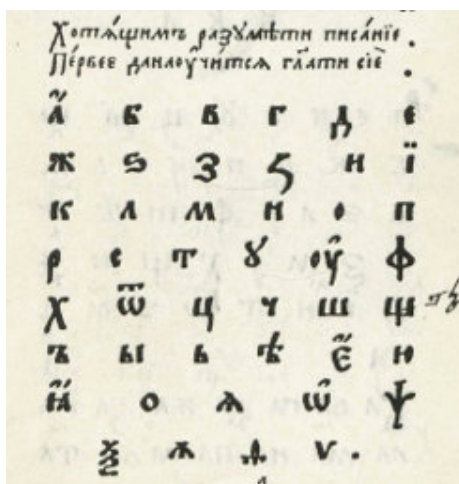 Хотѧ́щимъ разꙋмѣ́ти писа́нїе.
Пе́рвее данаоу́читсѧ гл҃ати сїѐ.
А҆ Б В Г Д Е
Ж Ѕ З Ꙁ И Ї
К Л М Н О П
Р С Т Ꙋ ОУ҆ Ф
Х Ѿ Ц Ч Ш Щ
Ъ Ы Ь Ѣ Е҆ Ю
Ꙗ҆ О Ѧ Ѡ҆ Ѱ
Ѯ Ѧ Ѫ Ѵ.